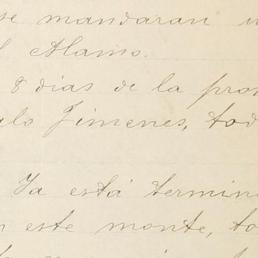 se mandaran
el Alamo.
8 dias de la
Jimenes, tod
Ya está termin
este monte, to